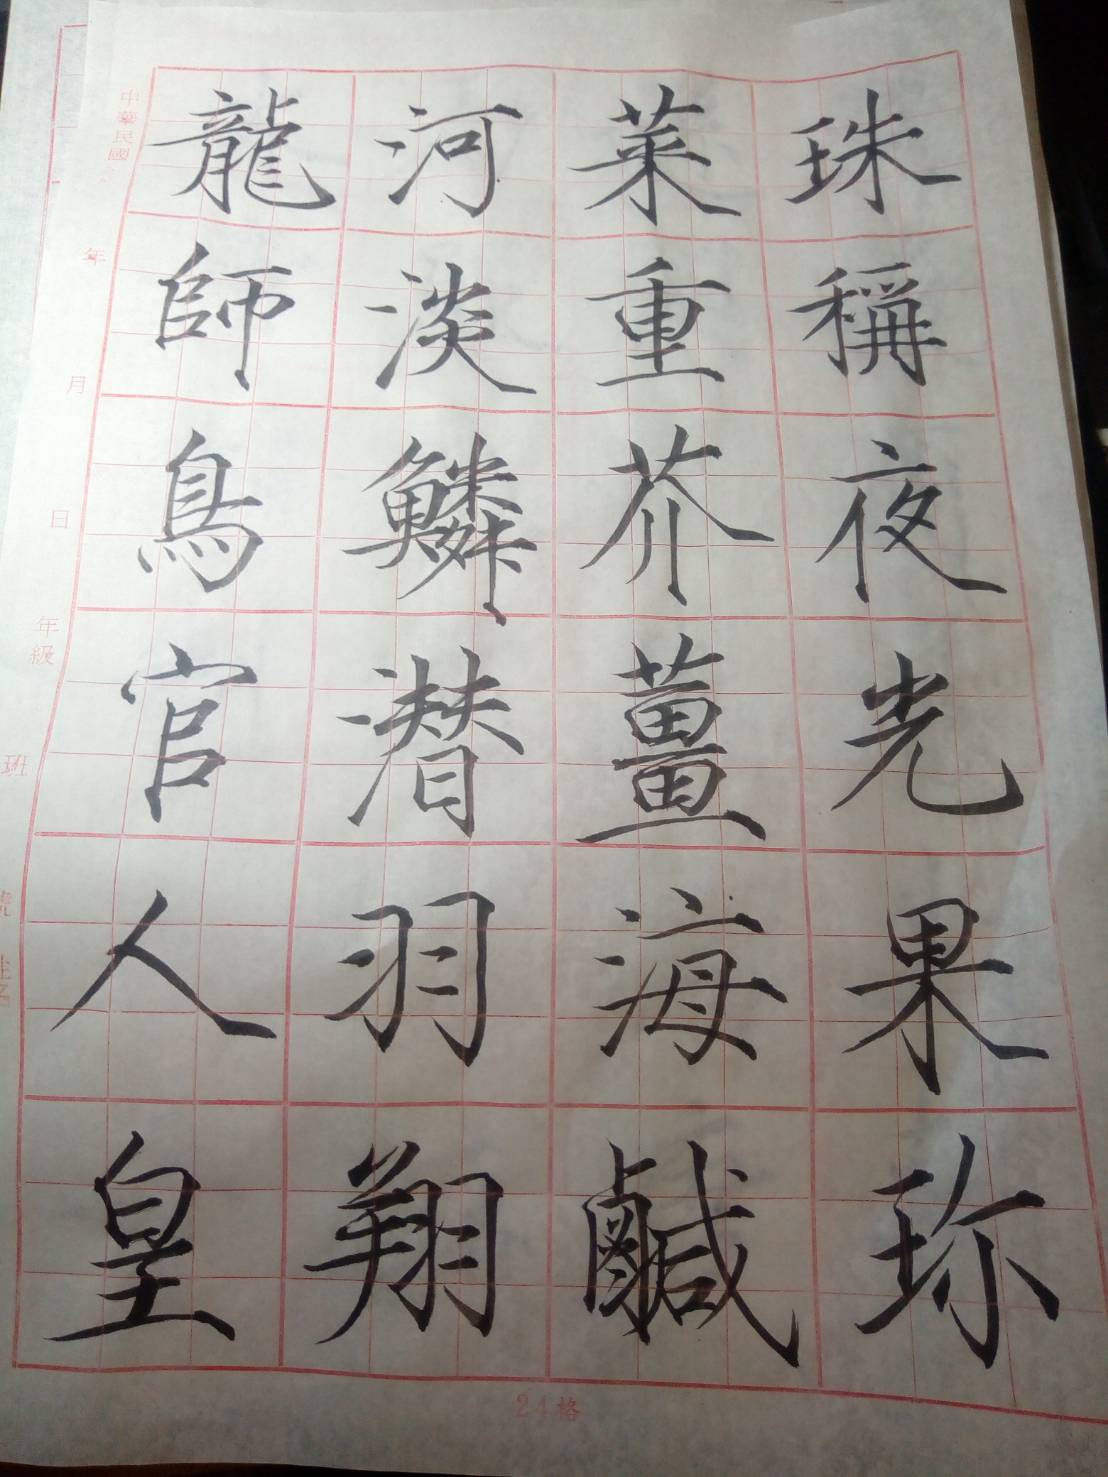 珠稱夜光果珎
菜重芥薑海鹹
河淡鱗潜羽翔
龍師鳥官人皇
中華民國
年
月
日
年級
班
號
姓名
24格